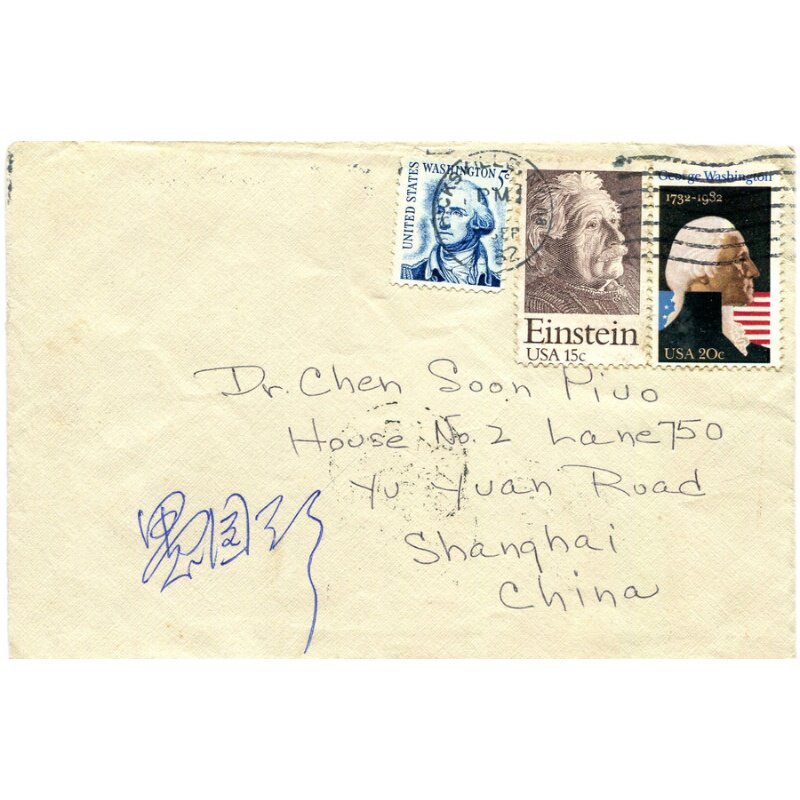 UNITED STATES
WASHINGTON 5¢
PM
SEP
Einstein
USA 15c
George Washington
1732-1982
USA 20c
Dr. Chen Soon Piuo
House No. 2 Lane 750
Yu Yuan Road
Shanghai
China